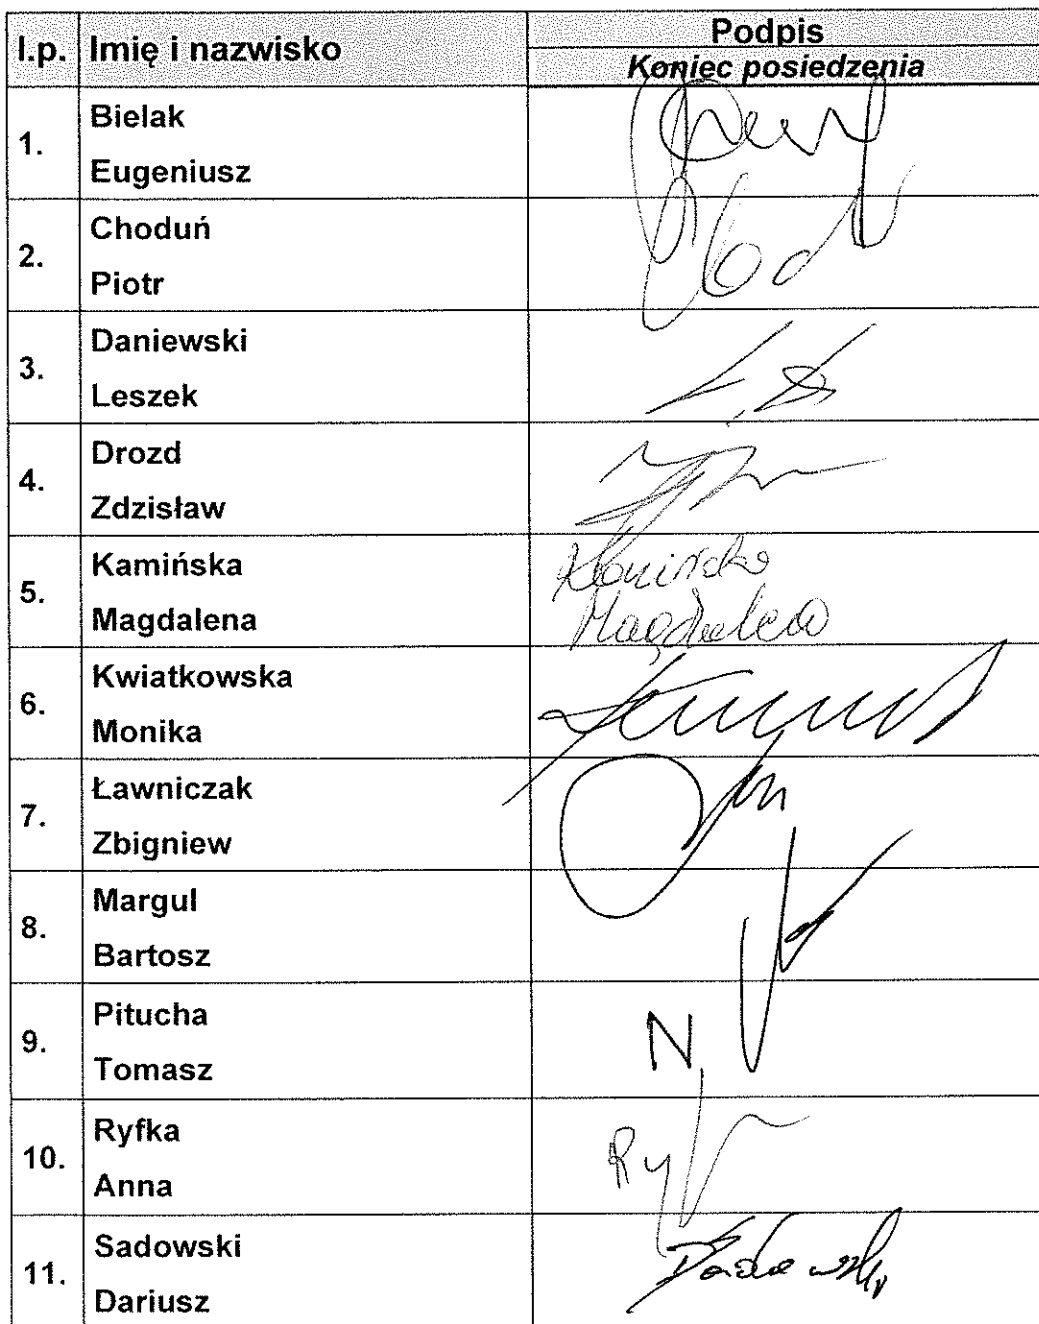 l.p. Imię i nazwisko Podpis
Koniec posiedzenia
1. Bielak
Eugeniusz
2. Choduń
Piotr
3. Daniewski
Leszek
4. Drozd
Zdzisław
5. Kamińska
Magdalena
Kamińska
Magdalena
6. Kwiatkowska
Monika
7. Ławniczak
Zbigniew
8. Margul
Bartosz
9. Pitucha
Tomasz
N
10. Ryfka
Anna
11. Sadowski
Dariusz